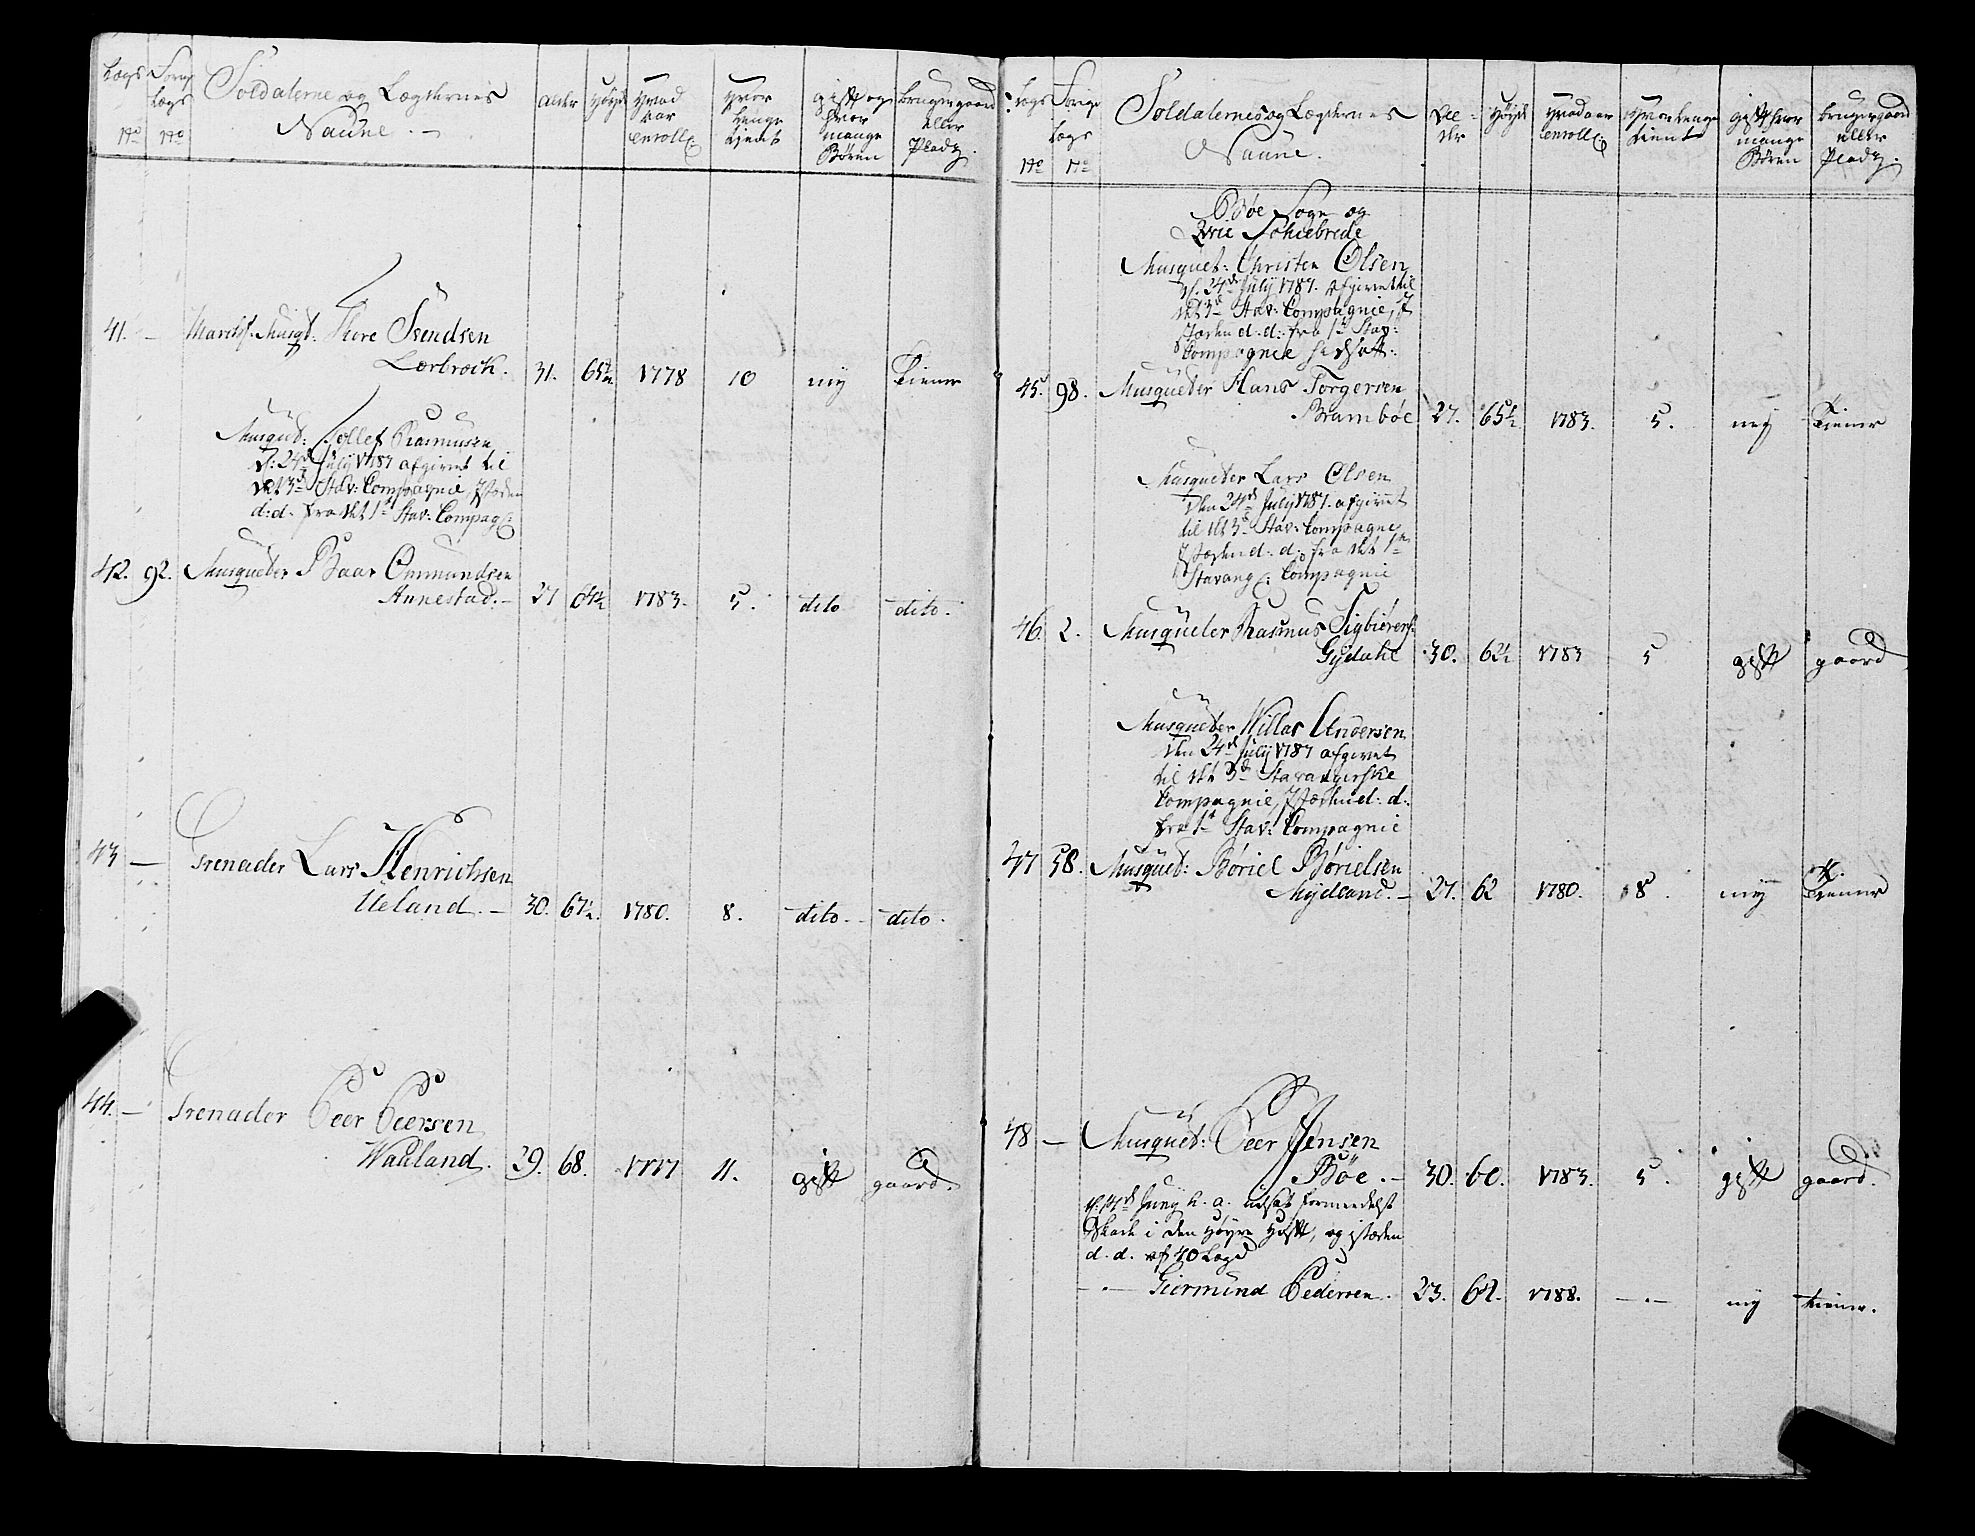 Lægs No
Forige Lægs No
Soldaterne og Lægdernes
Naune.
Alder
Høyde
Hvad aar enroll:
Hvor lenge tient
gift og hvor mange Børen
bruger gaard eller Plads.
41. — March: Musqt: Thore Svendsen
Lærbroch. 31. 65½ 1778 10 nej tiener
Musqut: Tollef Rasmusen
d: 24de July 1787 afgivet til
det 3de Stav: Compagnie, istæden
d:d. fra det 1te Stav: Compag:
42. 92. Musqueter Baar Ommundsen
Annestad. 27 64½ 1783. 5. dito dito.
43 — Grenader Lars Henrichsen
Ueland. 30. 67½ 1780. 8. dito. dito.
44. — Grenader Peer Peersen
Waaland. 39. 68. 1777 11. gift gaard.
Lægs No
Forige Lægs No
Soldaternes og Lægdernes
Naune.
Alder
Høyde
Hvad aar enroll:
Hvor lenge tient
gift hvor mange Børen
bruger gaard eller Plads.
Bøe Sogn og
Skiebrede
Musquet: Christen Olsen
d. 24de July 1787. afgivet til
det 3de Stav: Compagnie, I
stæden d:d: fra 1te Stav:
Compagnie
45. 98. Musqueter Hans Torgersen
Brambøe 27. 65½ 1783. 5. nej tiener
Musqueter Lars Olsen
den 24de July 1787. afgivet
til det 3de Stav: Compagnie
Istæden d:d. fra det 1te
Stavang: Compagnie
46. 2. Musqueter Rasmus Sigbiørens:
Gydahl 30. 62½ 1783 5 gift gaard
Musqueter Villas Andersen
den 24de July 1787 afgivet
til det 3de Stavangerske
Compagnie, Istæden d:d:
fra 1te Stav: Compagnie
47 58. Musquet: Børiel Børielsen
Mydland. 27. 62 1780. 8. nej tiener
48 — Musquet: Peer Jensen
Bøe. 30. 60. 1783. 5. gift gaard.
d: 14de Juny h. a. udsat formedelst
Skade i den Høyre Høfte, og istæden
d. d. af 40 Lægd
—.— Giermund Pedersen. 23. 62. 1788. —.— nej tiener.